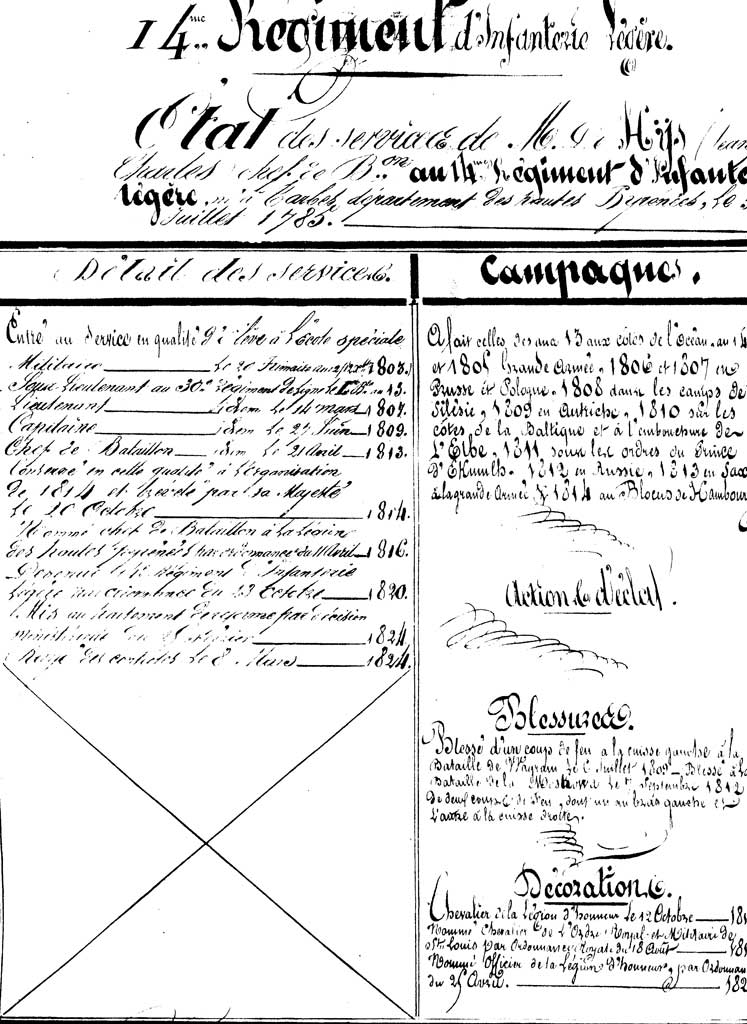 14me Régiment d'Infanterie Légère.
Etat des services de M. de (Jean
Charles chef de Bon au 14me Régiment d'Infante
légère, né à Tarbes, département des hautes Pyrénées, le
Juillet 1785.
Détail des services.
Entré au Service en qualité d'élève à l'école spéciale
Militaire le 20 Frimaire an 1803.
Sous Lieutenant au 30e Régiment de ligne le an 13.
Lieutenant idem le 14 mars 1807.
Capitaine idem le 27 Juin 1809.
Chef de Bataillon idem le 21 Avril 1813.
Conservé en cette qualité à l'organisation
de 1814 et breveté par sa Majesté
le 20 Octobre 1814.
Nommé chef de Bataillon à la Légion
des hautes Pyrénées par ordonnance du 11 Avril 1816.
Devenue le Régiment d'Infanterie
Légère par ordonnance du 23 Octobre 1820.
Mis au traitement de réforme par décision
ministérielle du Février 1824.
Rayé des contrôles le 8 Mars 1824.
Campagnes.
A fait celles des ans 13 aux côtes de l'Océan, an 14
et 1805 Grande Armée, 1806 et 1807 en
Prusse et Pologne, 1808 dans les camps de
Silésie, 1809 en Autriche, 1810 sur les
côtes de la Baltique et à l'embouchure de
L'Elbe, 1811 sous les ordres du Prince
D'Ekmulh. 1812 en Russie, 1813 en Sax
à la grande Armée, & 1814 au Blocus de Hambour
Actions d'éclat.
Blessures.
Blessé d'un coup de feu à la cuisse gauche à la
Bataille de Wagram le 6 Juillet 1809, Blessé à la
Bataille de la Moskowa le 7 Septembre 1812
De deux coups de feu, dont un au bras gauche et
L'autre à la cuisse droite.
Décorations.
Chevalier de la Légion d'honneur le 12 Octobre 181
Nommé Chevalier de L'Ordre Royal et Militaire de
St Louis par Ordonnance Royale du 18 Août 181
Nommé Officier de la Légion d'honneur, par Ordonnan
du 25 Avril. 182